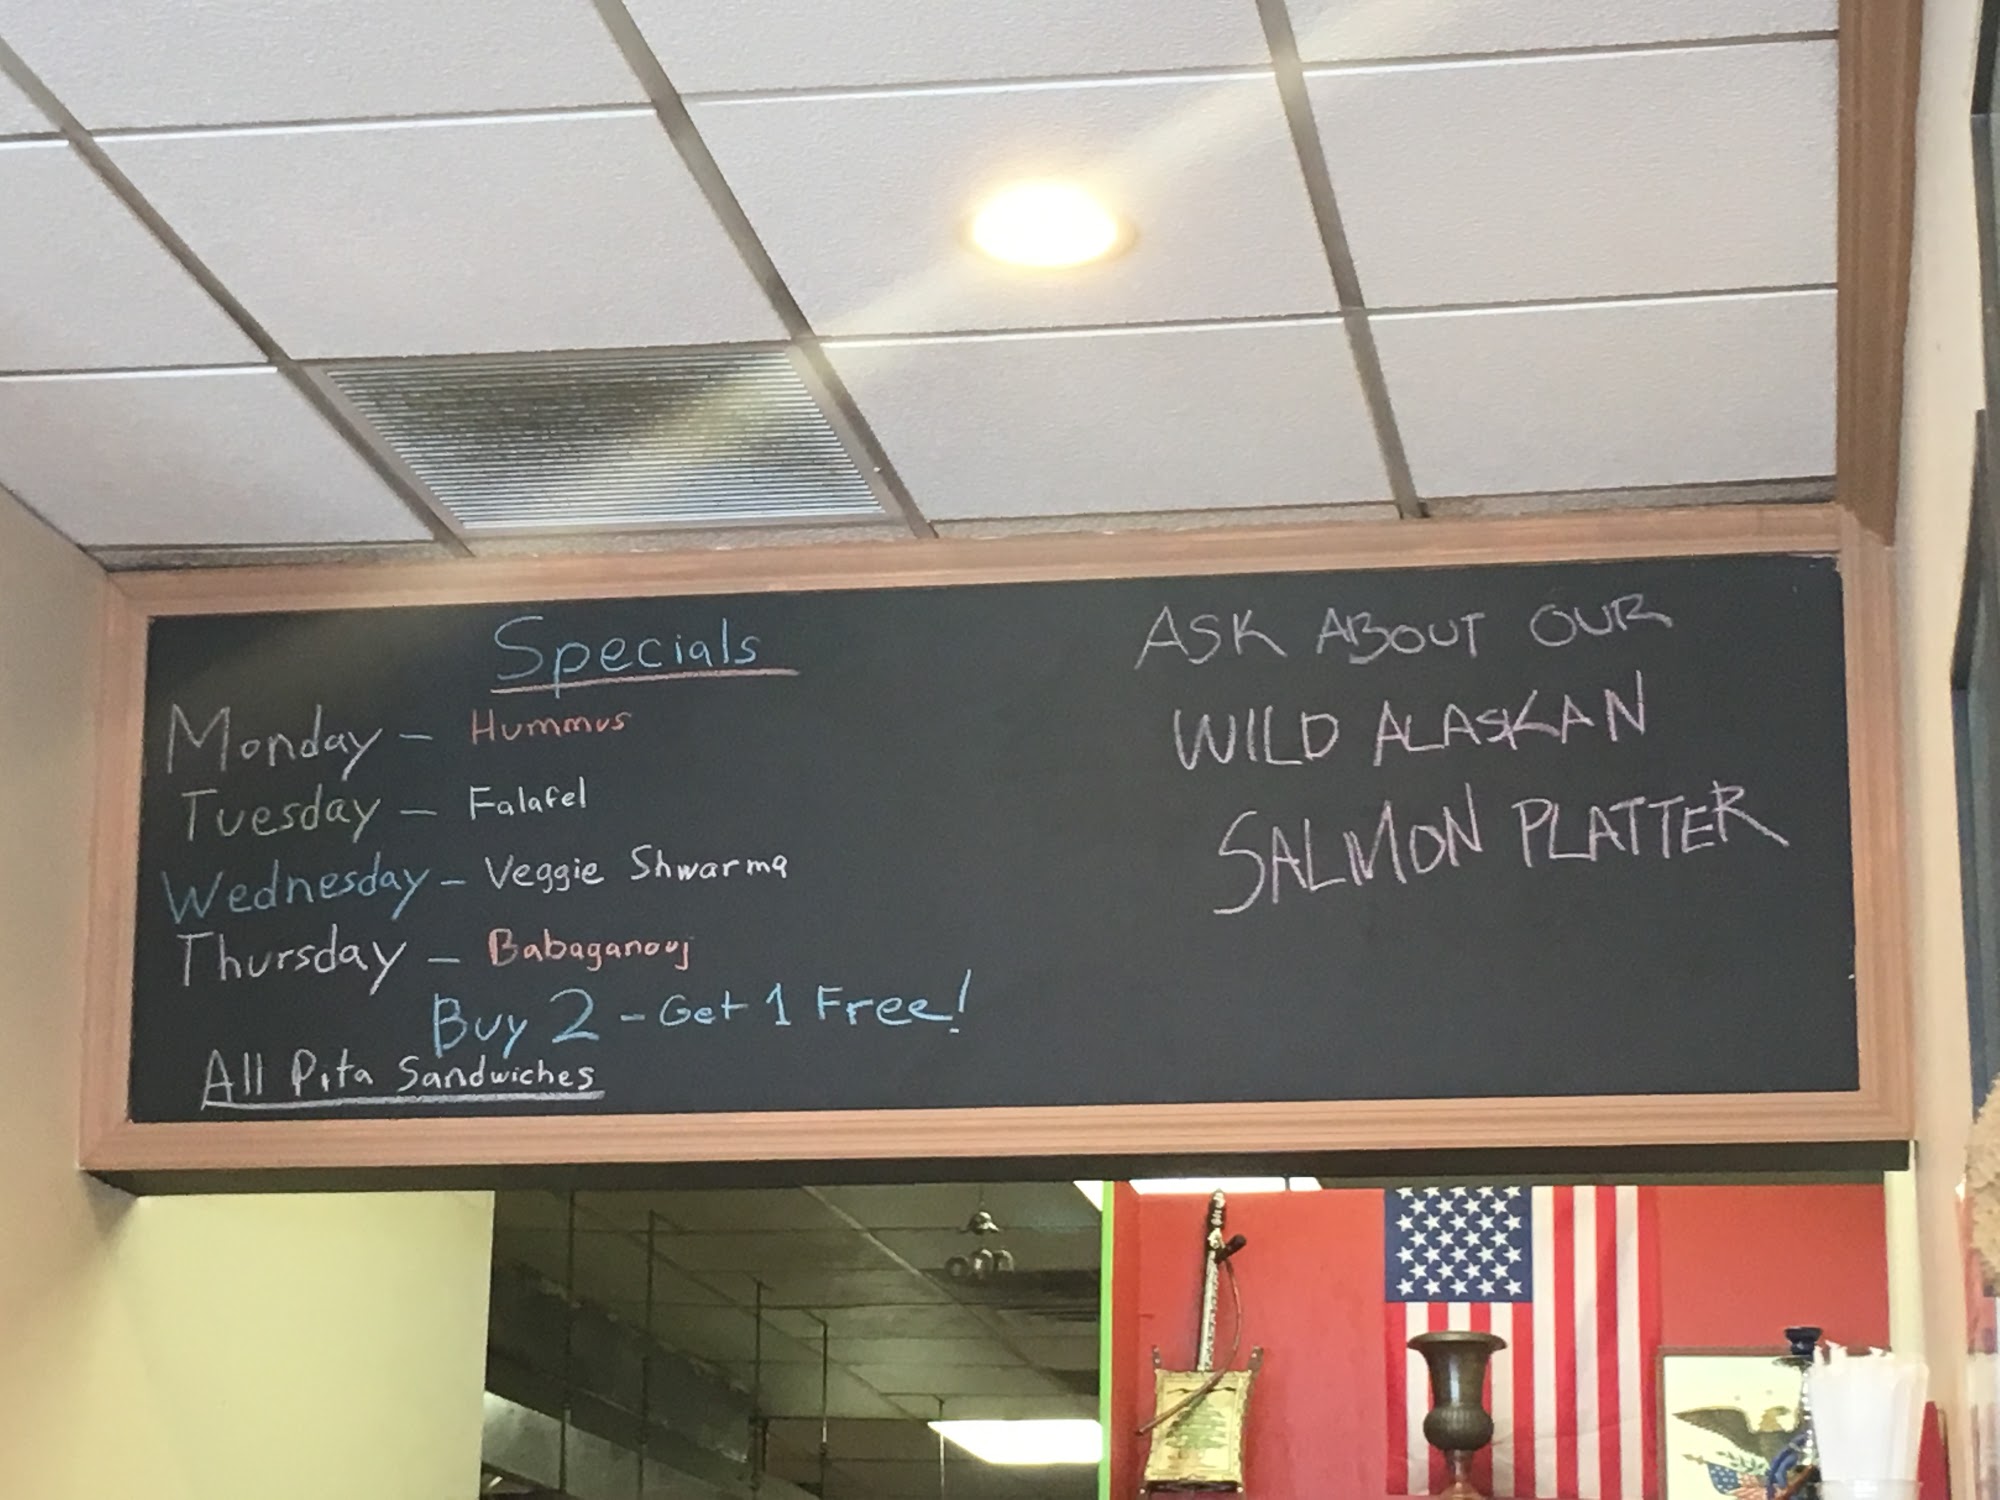 Specials
Monday - Hummus
Tuesday - Falafel
Wednesday - Veggie Shwarma
Thursday - Babaganouj
Buy 2 - Get 1 Free!
All Pita Sandwiches
ASK ABOUT OUR
WILD ALASKAN
SALMON PLATTER